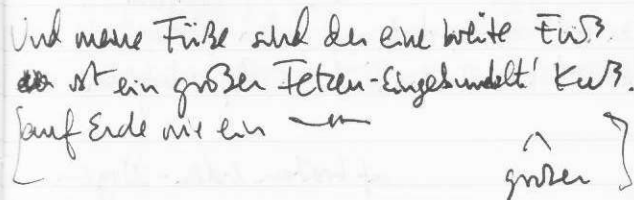 Und meine Füße sind der eine breite Fuß.
ist ein großer Fetzen-Eingebundelt! Kuß.
[auf Erde wie ein —
großer]